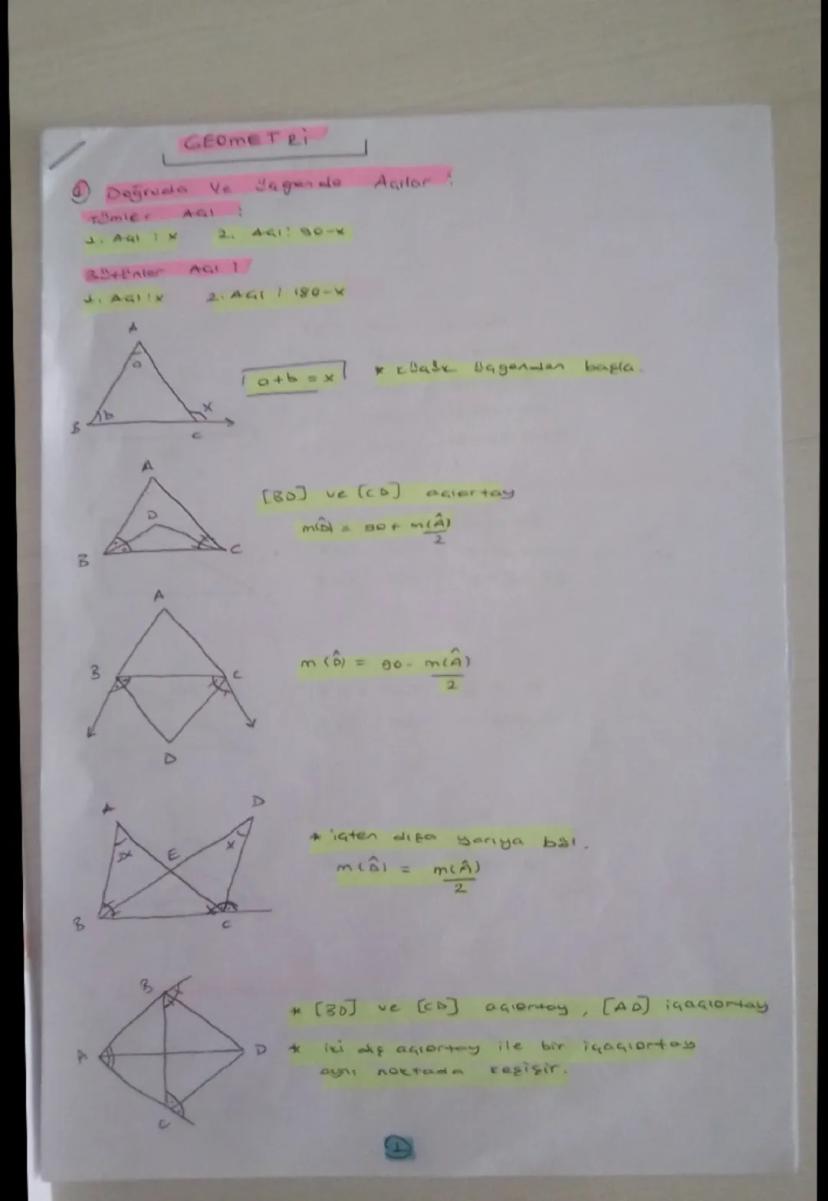 GEOMETRİ
① Doğruda ve Üçgende Açılar :
Tümler Açı :
1. Açı : x 2. Açı : 90-x
Bütünler Açı :
1. Açı : x 2. Açı : 180-x
A
a
B b x C
a+b = x * Küçük üçgenden başla.
A
D
B C
[BD] ve [CD] açıortay
m(D̂) = 90 + m(Â)/2
A
B C
D
m(D̂) = 90 - m(Â)/2
A D
x E x
B C
* içten dışa yarıya böl.
m(D̂) = m(Â)/2
B
A D
C
* [BD] ve [CD] açıortay, [AD] içaçıortay
* iki dış açıortay ile bir içaçıortay
aynı noktada kesişir.
1